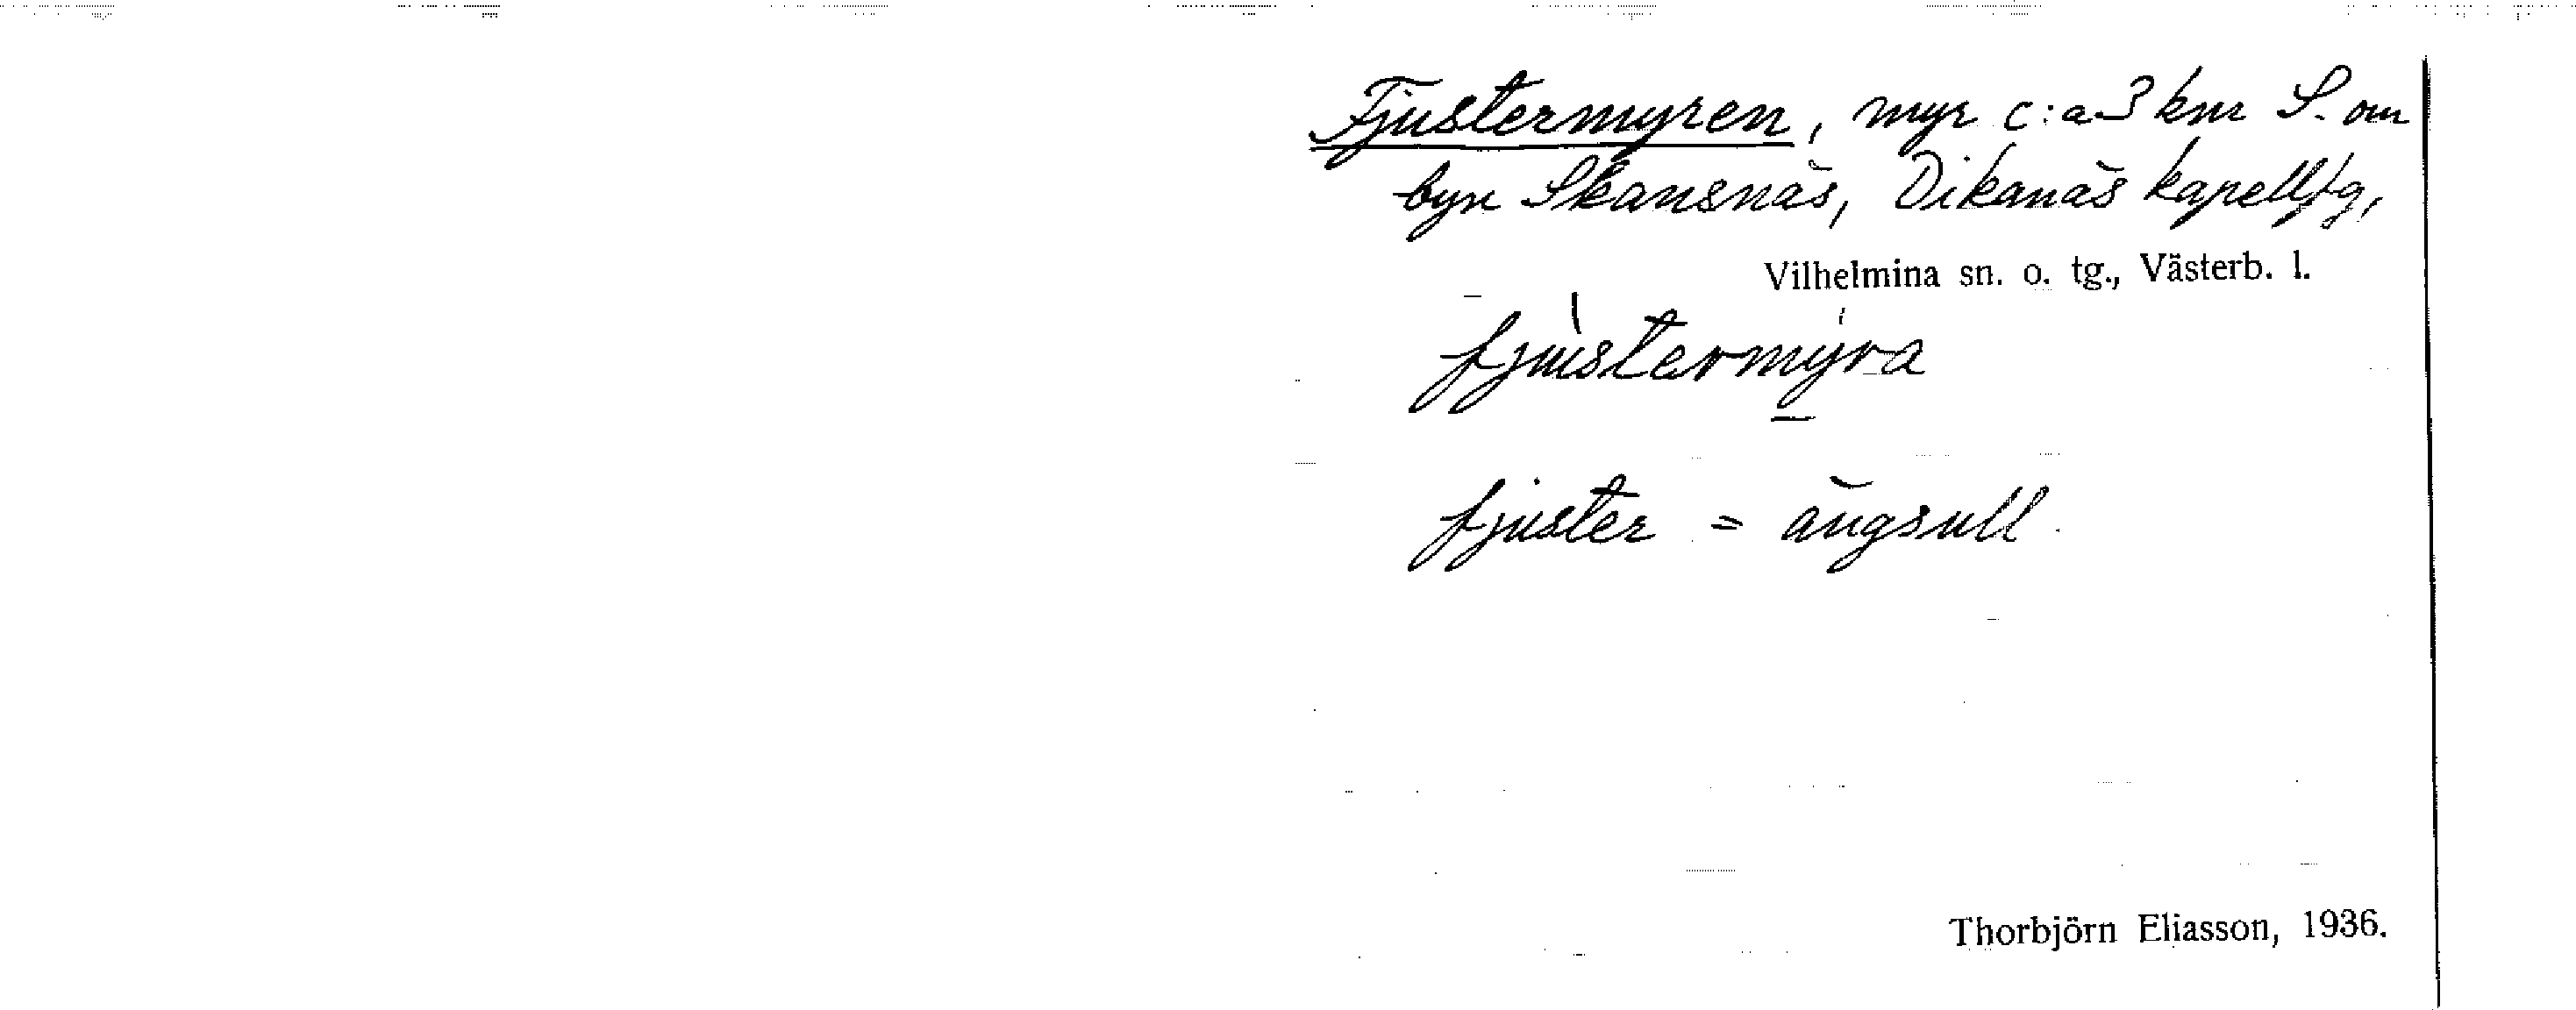 Fjustermyren, myr c:a 3 km S. om
byn Skansnäs, Dikanäs kapellfg,
Vilhelmina sn. o. tg., Västerb. l.
fjùstermýra
fjuster = ängsull.
Thorbjörn Eliasson, 1936.